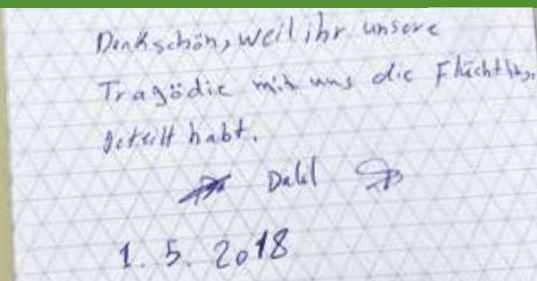 Dankschön, weil ihr unsere
Tragödie mit uns die Flüchtling
geteilt habt.
Dalil
1. 5. 2018